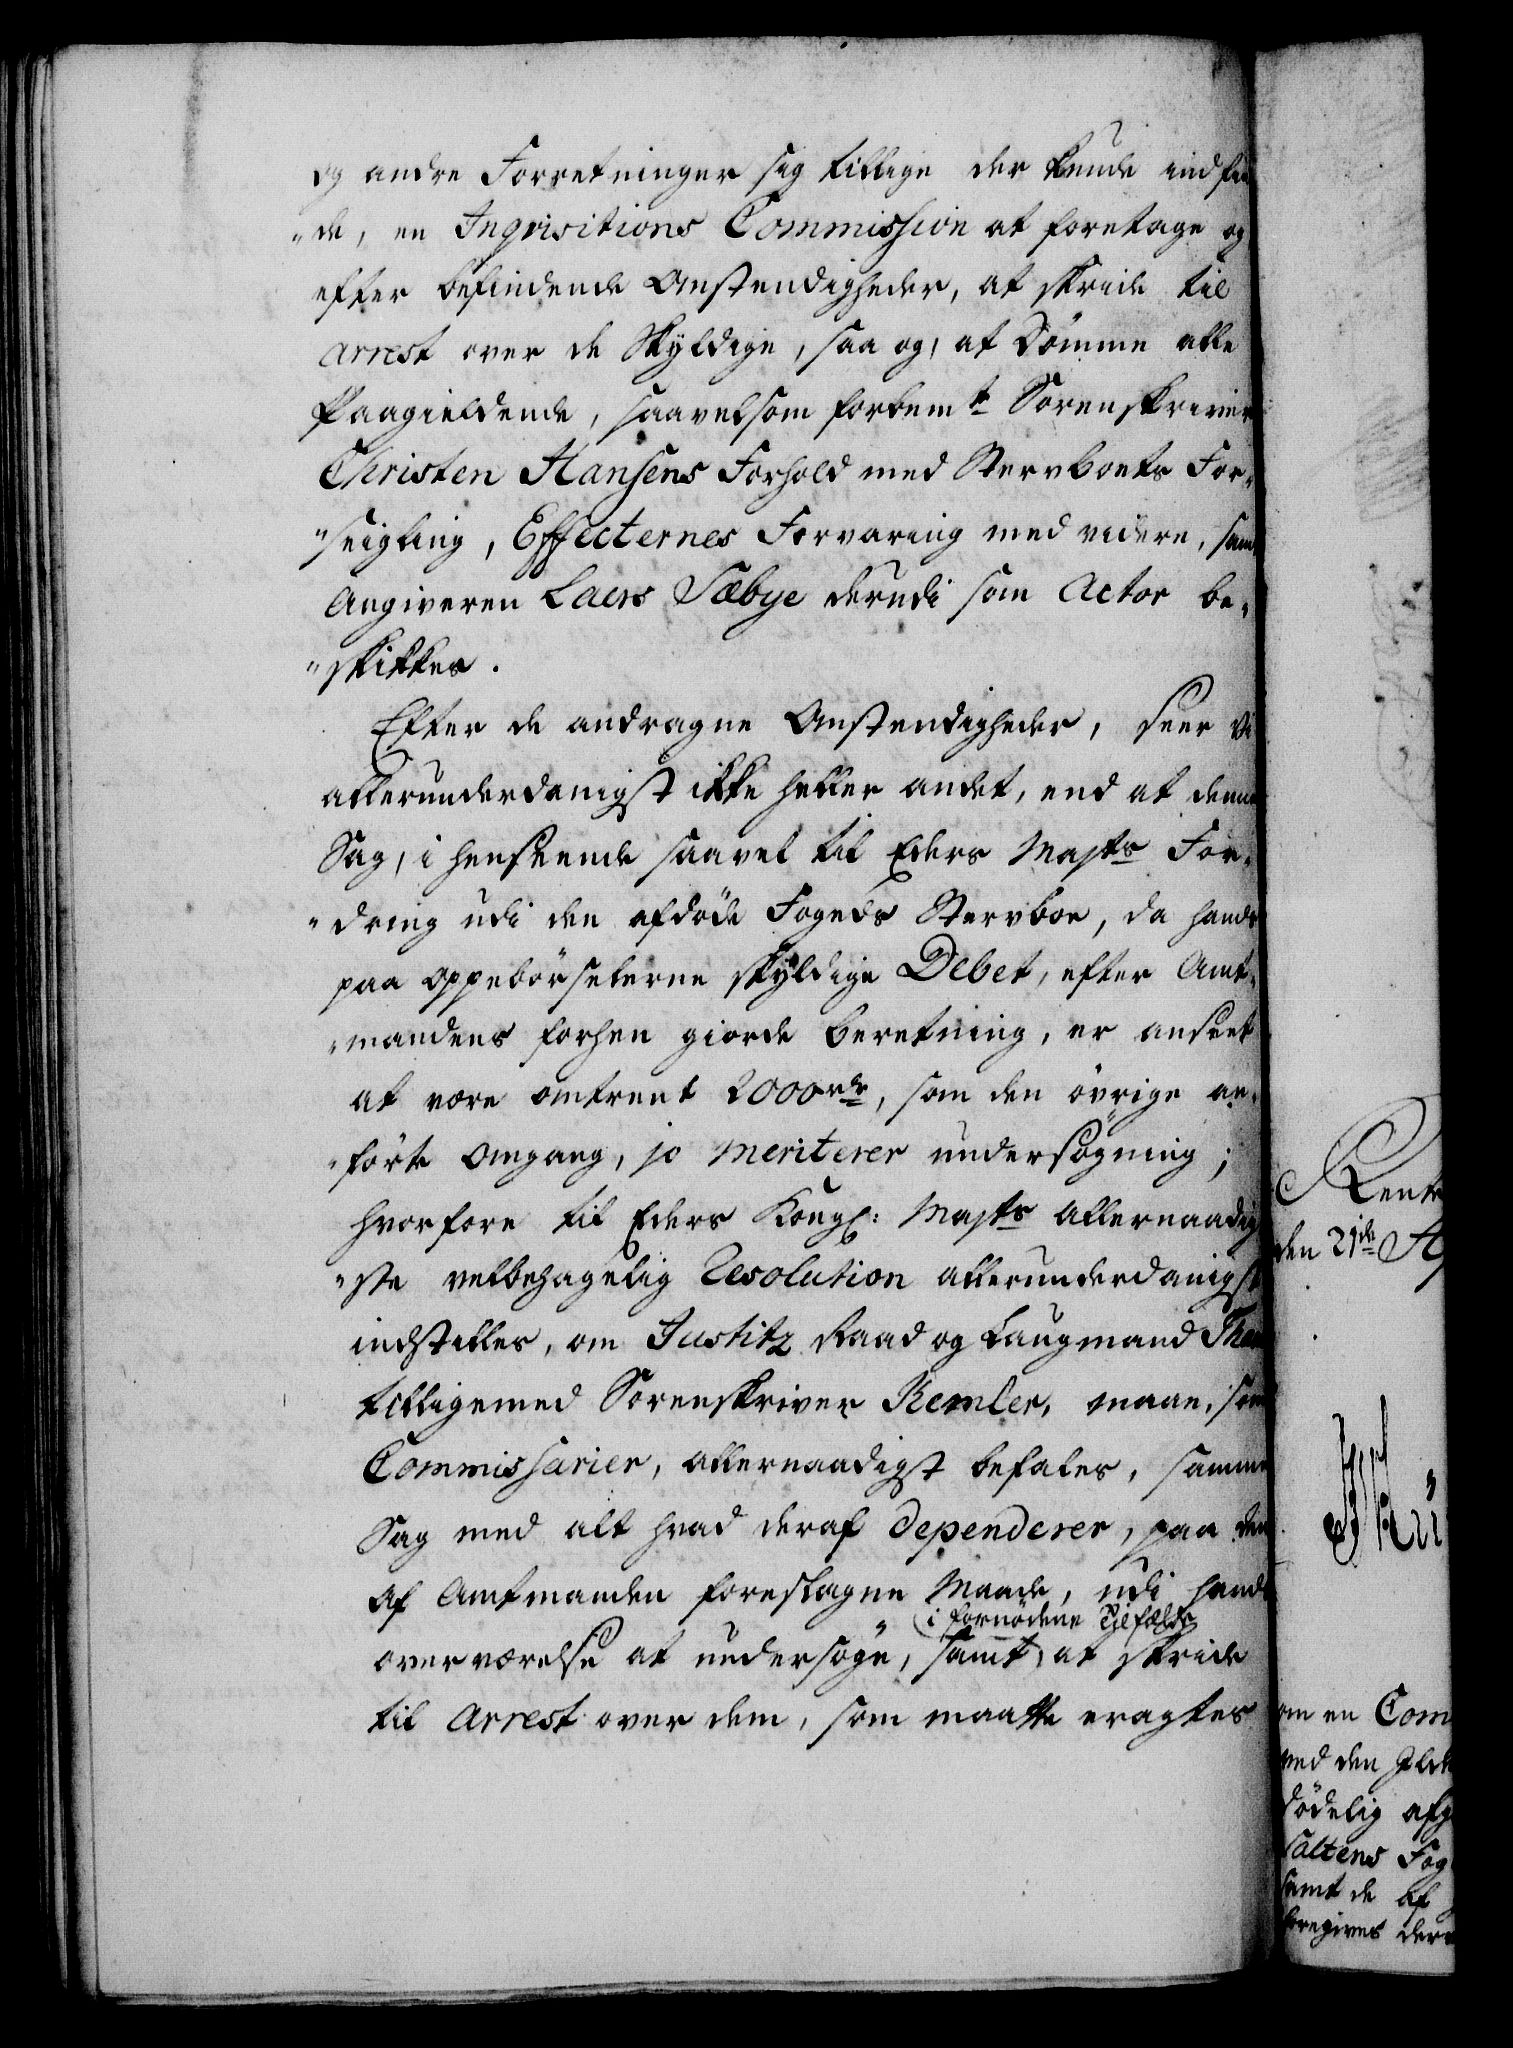 og andre Forretninger sig tillige der kunde indfin
"de, en Inqvisitions Commission at foretage og
efter befindende Omstendigheder, at skride til
Arrest over de Skyldige, saa og, at Dömme alle
Paagieldende, saavelsom forbemte Sorenskriver
Christen Hansens Forhold med Stervboets For„
"seigling, Effecternes Forvaring med videre, samt
Angiveren Laers Sæbye derudi som Actor be„
"skikkes.
Efter de andragne Omstendigheder, seer Vi
allerunderdanigst ikke heller andet, end at denne
Sag, i henseende saavel til Eders Majts For„
"dring udi den afdöde Fogeds Stervboe, da hands
paa Oppebörselerne skyldige Debet, efter Amt„
"mandens forhen giorde Beretning, er anseet
at være omtrent 2000 rdr, som den övrige an„
"förte Omgang, jo meriterer undersögning;
hvorfore til Eders Kongl: Majts Allernaadig
"ste velbehagelig Resolution allerunderdanigst
indstilles, om Justitz Raad og Laugmand
tilligemed Sorenskriver Kemler, maae, som
Commissarier, allernaadigst befales, samme
Sag med alt hvad deraf dependerer, paa den
af Amtmanden foreslagne Maade, udi hands
i fornödene Tilfælde
overværelse at undersöge, samt, at skride
til Arrest over dem, som maatte eragtes
den 21de
om en Com
ved den
dödelig afg
Saltens Fog
samt de af
foregives der